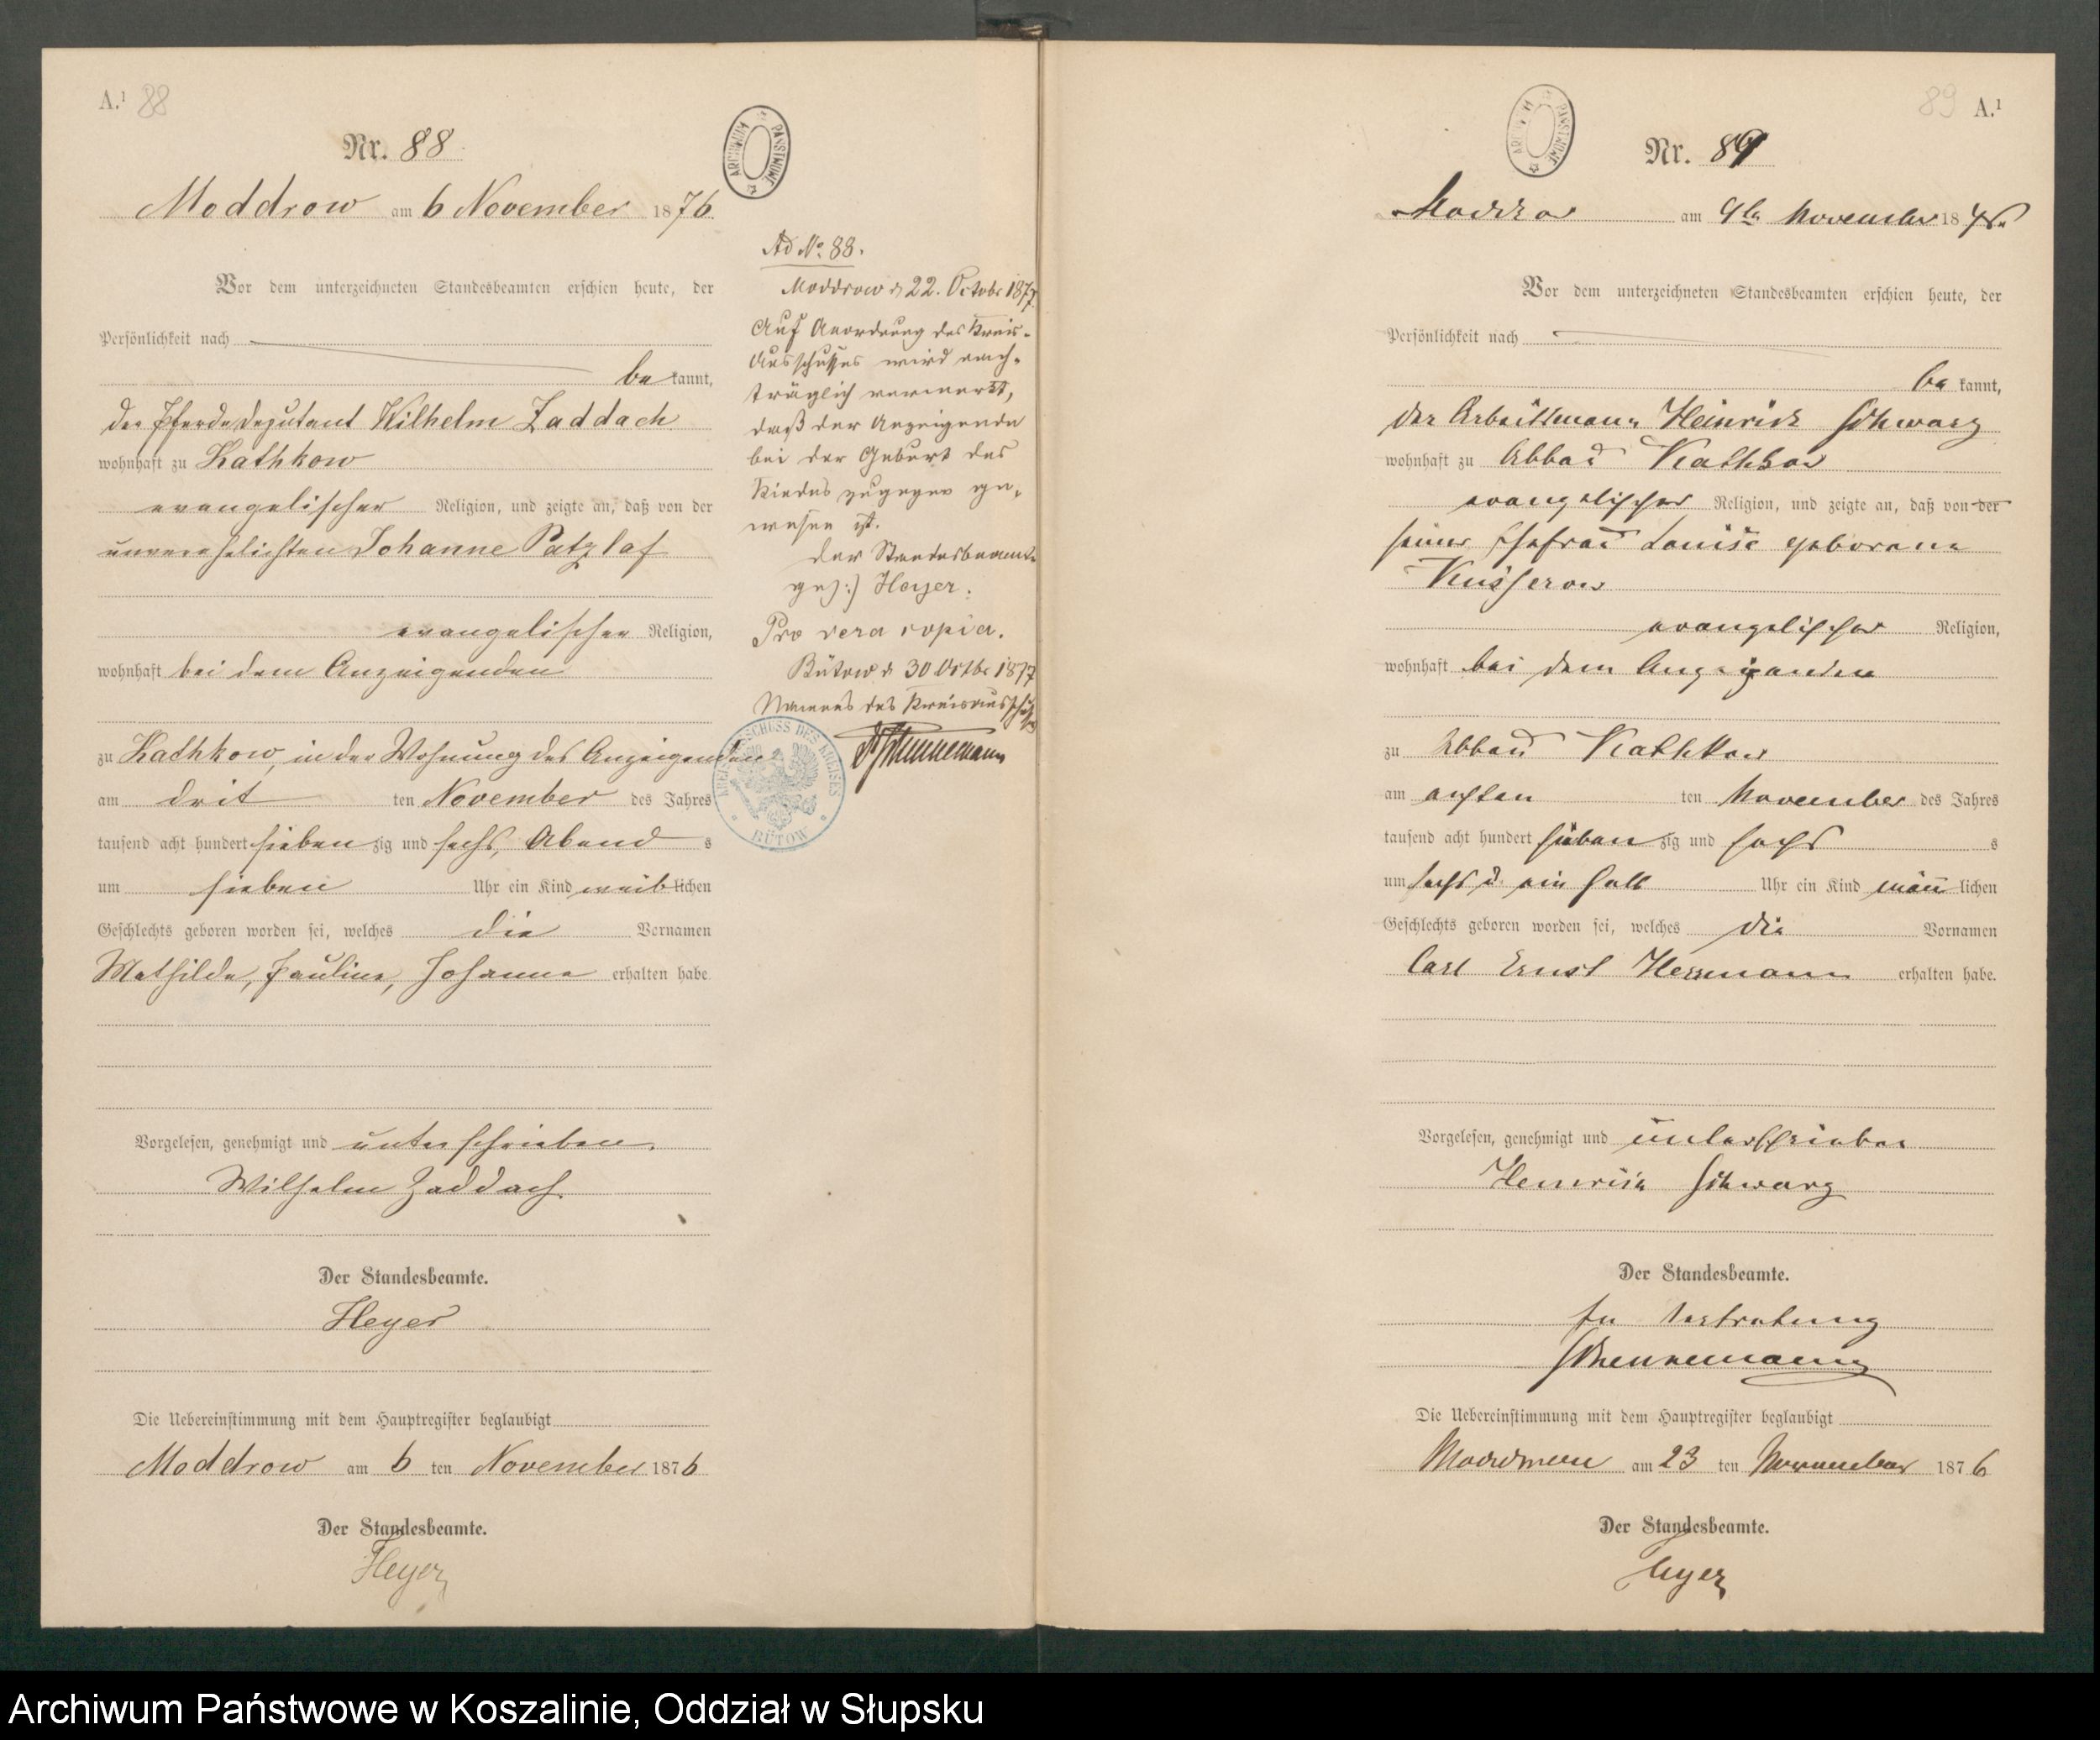 A.¹ 88
ARCHIWUM PAŃSTWOWE
Nr. 88
Moddrow am 6 November 1876
Vor dem unterzeichneten Standesbeamten erschien heute, der
Persönlichkeit nach
be kannt,
der Pferdedeputant Wilhelm Zaddach
wohnhaft zu Kathkow
evangelischer Religion, und zeigte an, daß von der
unverehelichten Johanne Patzlaf
evangelischer Religion,
wohnhaft bei dem Anzeigenden
zu Kathkow, in der Wohnung des Anzeigenden
am drit ten November des Jahres
tausend acht hundert sieben zig und sechs, Abend s
um sieben Uhr ein Kind weib lichen
Geschlechts geboren worden sei, welches die Vornamen
Mathilde, Pauline, Johanne erhalten habe
Vorgelesen, genehmigt und unterschrieben.
Wilhelm Zaddach
Der Standesbeamte.
Heyer
Die Uebereinstimmung mit dem Hauptregister beglaubigt
Moddrow am 6 ten November 1876
Der Standesbeamte.
Heyer
Ad No. 88.
Moddrow d. 22. Octobr 1877
Auf Anordnung des Kreis-
Ausschusses wird nach-
träglich vermerkt,
daß der Anzeigende
bei der Geburt des
Kindes zugegen ge-
wesen ist.
Der Standesbeamte
gez:) Heyer.
Pro vera copia.
Bütow d 30 Octbr 1877
Namens des Kreisausschusses
KREIS-AUSSCHUSS DES KREISES
BÜTOW
89 A.¹
ARCHIWUM PAŃSTWOWE
Nr. 89
Moddrow am 9te November 1876
Vor dem unterzeichneten Standesbeamten erschien heute, der
Persönlichkeit nach
be kannt,
der Arbeitsmann Heinrich Schwarz
wohnhaft zu Abbau Kathkow
evangelischer Religion, und zeigte an, daß von der
seiner Ehefrau Louise geborene
Kusserow
evangelischer Religion,
wohnhaft bei dem Anzeigenden
zu Abbau Kathkow
am achten ten November des Jahres
tausend acht hundert sieben zig und sechs s
um sechs u. ein halb Uhr ein Kind männ lichen
Geschlechts geboren worden sei, welches die Vornamen
Carl Ernst Hermann erhalten habe.
Vorgelesen, genehmigt und unterschrieben
Heinrich Schwarz
Der Standesbeamte.
In Vertretung
Die Uebereinstimmung mit dem Hauptregister beglaubigt
Moddrow am 23 ten November 1876
Der Standesbeamte.
Heyer
Archiwum Państwowe w Koszalinie, Oddział w Słupsku